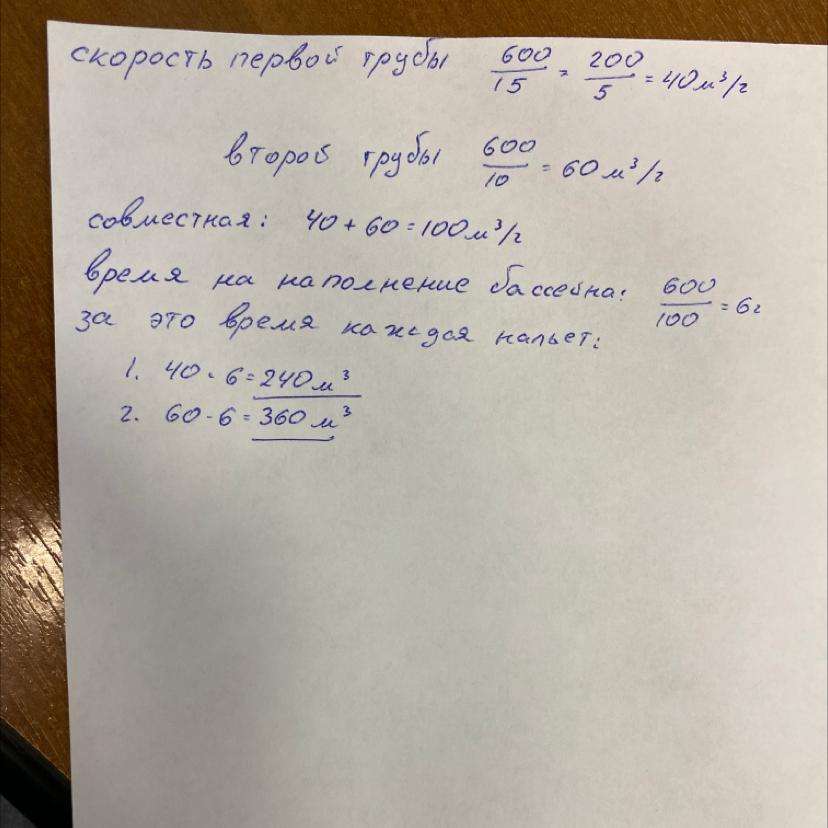 скорость первой трубы 600/15 = 200/5 = 40 м³/ч
второй трубы 600/10 = 60 м³/ч
совместная: 40 + 60 = 100 м³/ч
время на наполнение бассейна: 600/100 = 6ч
за это время каждая нальет:
1. 40 · 6 = 240 м³
2. 60 · 6 = 360 м³